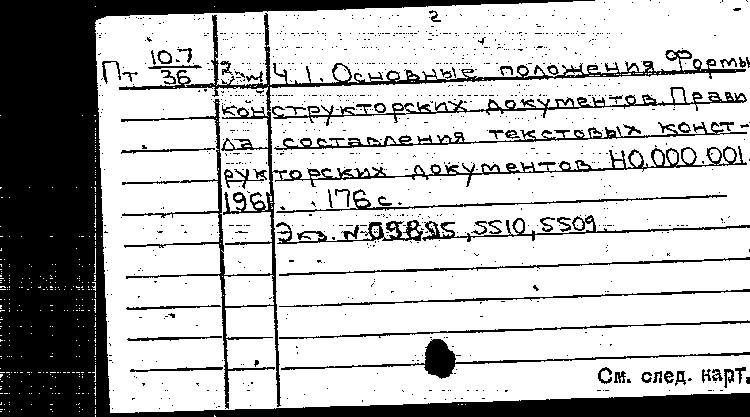 2
Пт 10.7/36 Ч.1. Основные положения. Формы
конструкторских документов. Прави
ла составления текстовых конст-
рукторских документов НО.000.001.
1961. 176 с.
Экз. № 09895, 5510, 5509
См. след. карт.